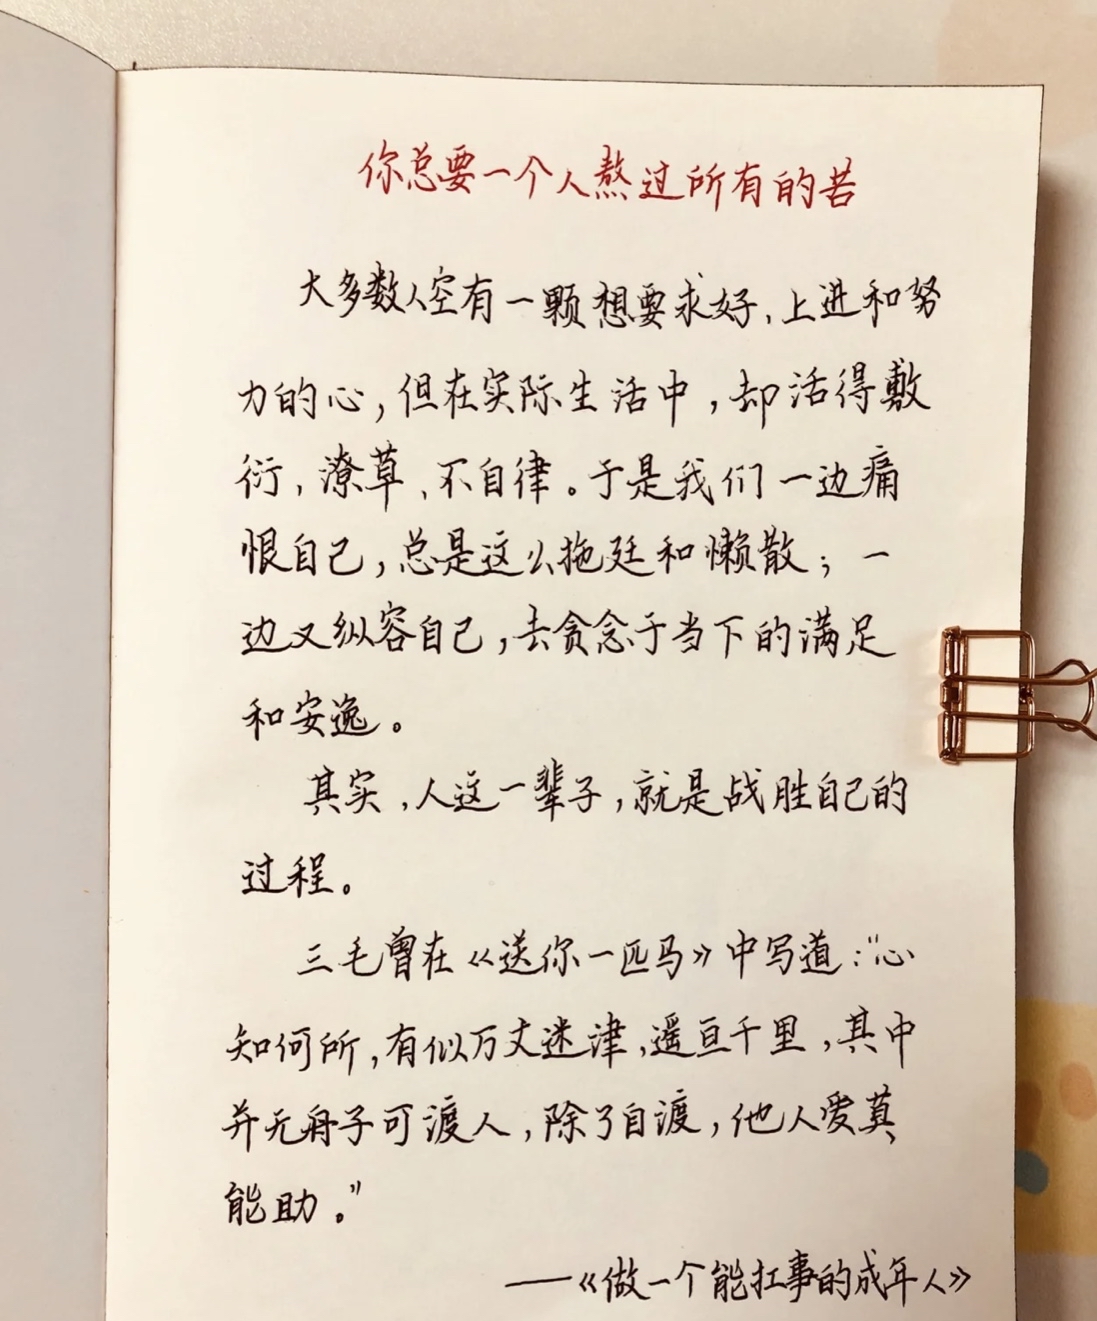 你总要一个人熬过所有的苦
大多数人空有一颗想要求好、上进和努
力的心,但在实际生活中,却活得敷
衍,潦草、不自律。于是我们一边痛
恨自己,总是这么拖延和懒散;一
边又纵容自己,去贪念于当下的满足
和安逸。
其实,人这一辈子,就是战胜自己的
过程。
三毛曾在《送你一匹马》中写道:“心
知何所,有似万丈迷津,遥亘千里,其中
并无舟子可渡人,除了自渡,他人爱莫
能助。”
——《做一个能扛事的成年人》